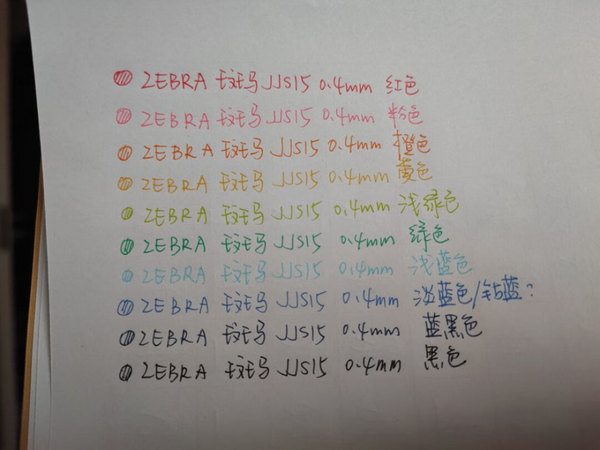 ZEBRA 斑马 JJS15 0.4mm 红色
ZEBRA 斑马 JJS15 0.4mm 粉色
ZEBRA 斑马 JJS15 0.4mm 橙色
ZEBRA 斑马 JJS15 0.4mm 黄色
ZEBRA 斑马 JJS15 0.4mm 浅绿色
ZEBRA 斑马 JJS15 0.4mm 绿色
ZEBRA 斑马 JJS15 0.4mm 浅蓝色
ZEBRA 斑马 JJS15 0.4mm 淡蓝色/钴蓝?
ZEBRA 斑马 JJS15 0.4mm 蓝黑色
ZEBRA 斑马 JJS15 0.4mm 黑色